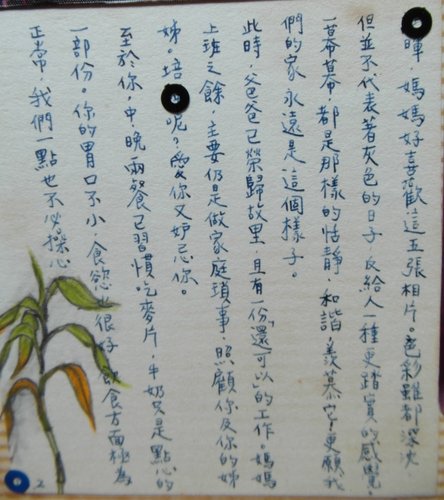 暉 媽媽好喜歡這五張相片。色彩雖都深沈,
但並不代表著灰色的日子,反給人一種更踏實的感覺
一幕幕,都是那樣的恬靜、和諧,羨慕它,更願我
們的家永遠是這個樣子。
此時,爸爸已榮歸故里,且有一份"還可以"的工作。媽媽
上班之餘,主要仍是做家庭瑣事,照顧你及你的姊
姊。培 呢?愛你又妒忌你。
至於你,中、晚兩餐已習慣吃麥片,牛奶只是點心的
一部份。你的胃口不小,食慾也很好,飲食方面極為
正常,我們一點也不必操心。
2